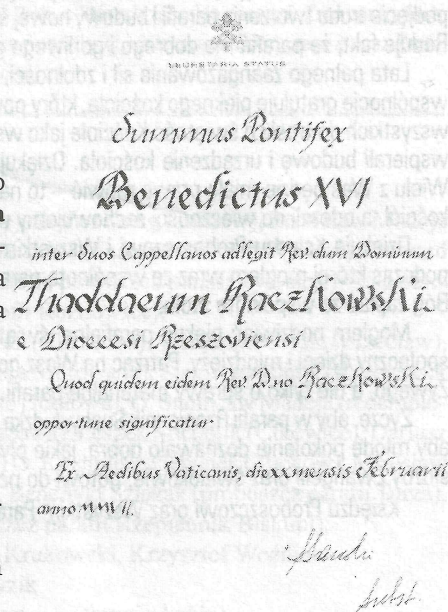 SECRETARIA STATUS
Summus Pontifex
Benedictus XVI
inter Suos Cappellanos adlegit Rev.dum Dominum
Thaddaeum Raczkowski
e Dioecesi Rzeszoviensi
Quod quidem eidem Rev. D.no Raczkowski
opportune significatur
Ex Aedibus Vaticanis, die xx mensis Februarii
anno MMVII.
Subst.